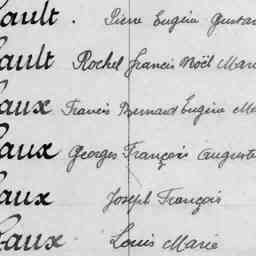 ault. Pierre Eugène Gustav
ault Rochel Francis Noël Marie
aux Francis Bernard Eugène Ma
aux Georges François Auguste
aux Joseph François
aux Louis Marie